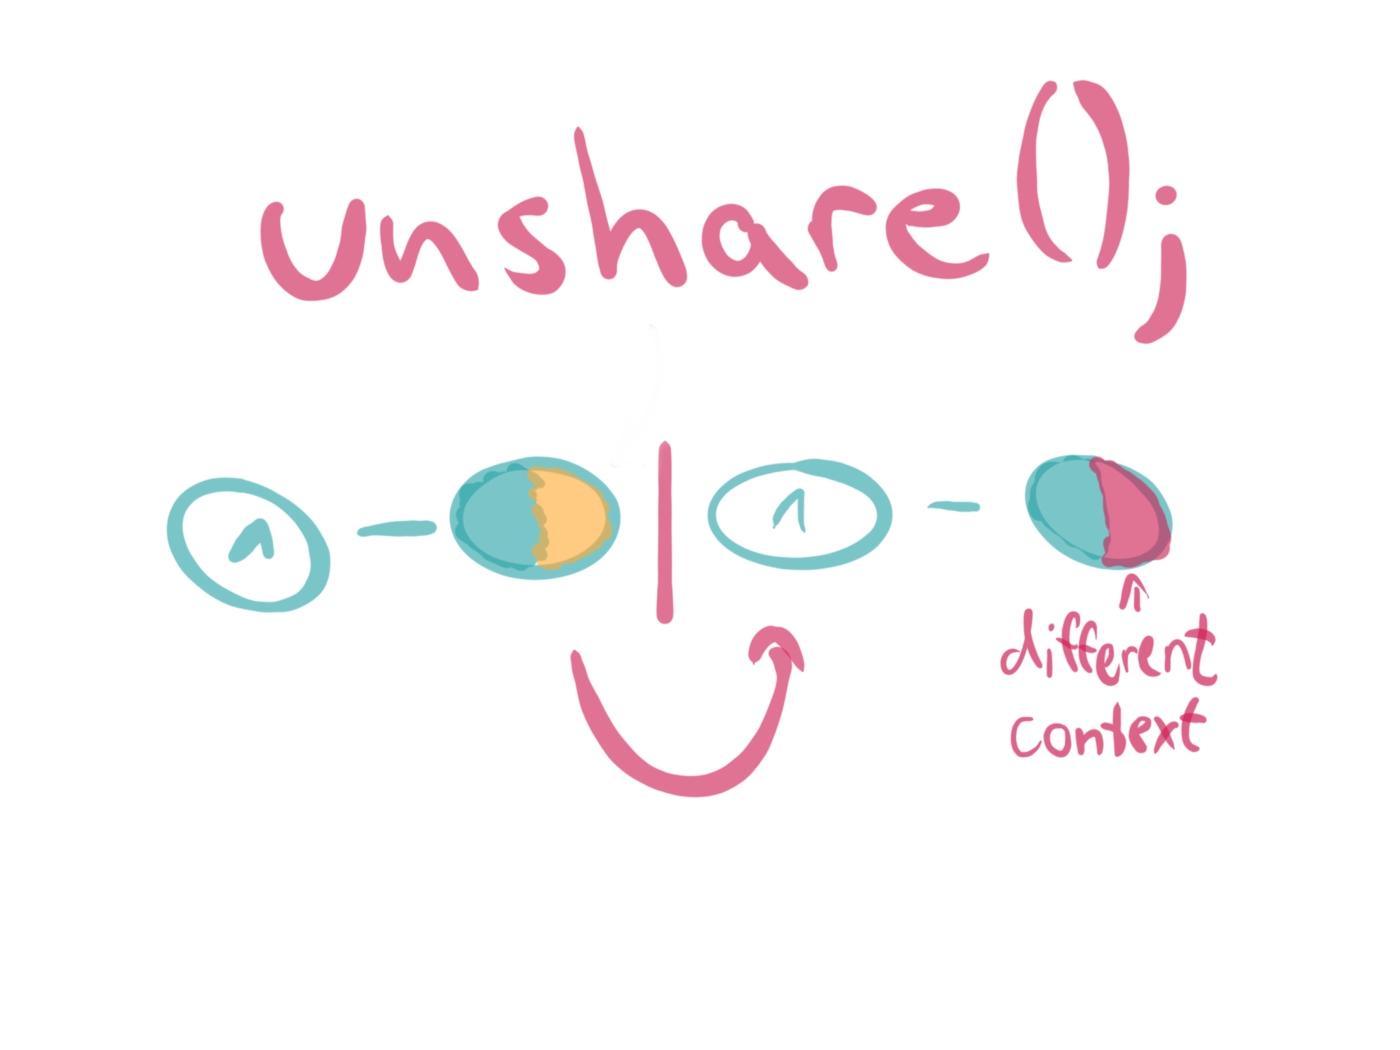 unshare();
1 1
different
context